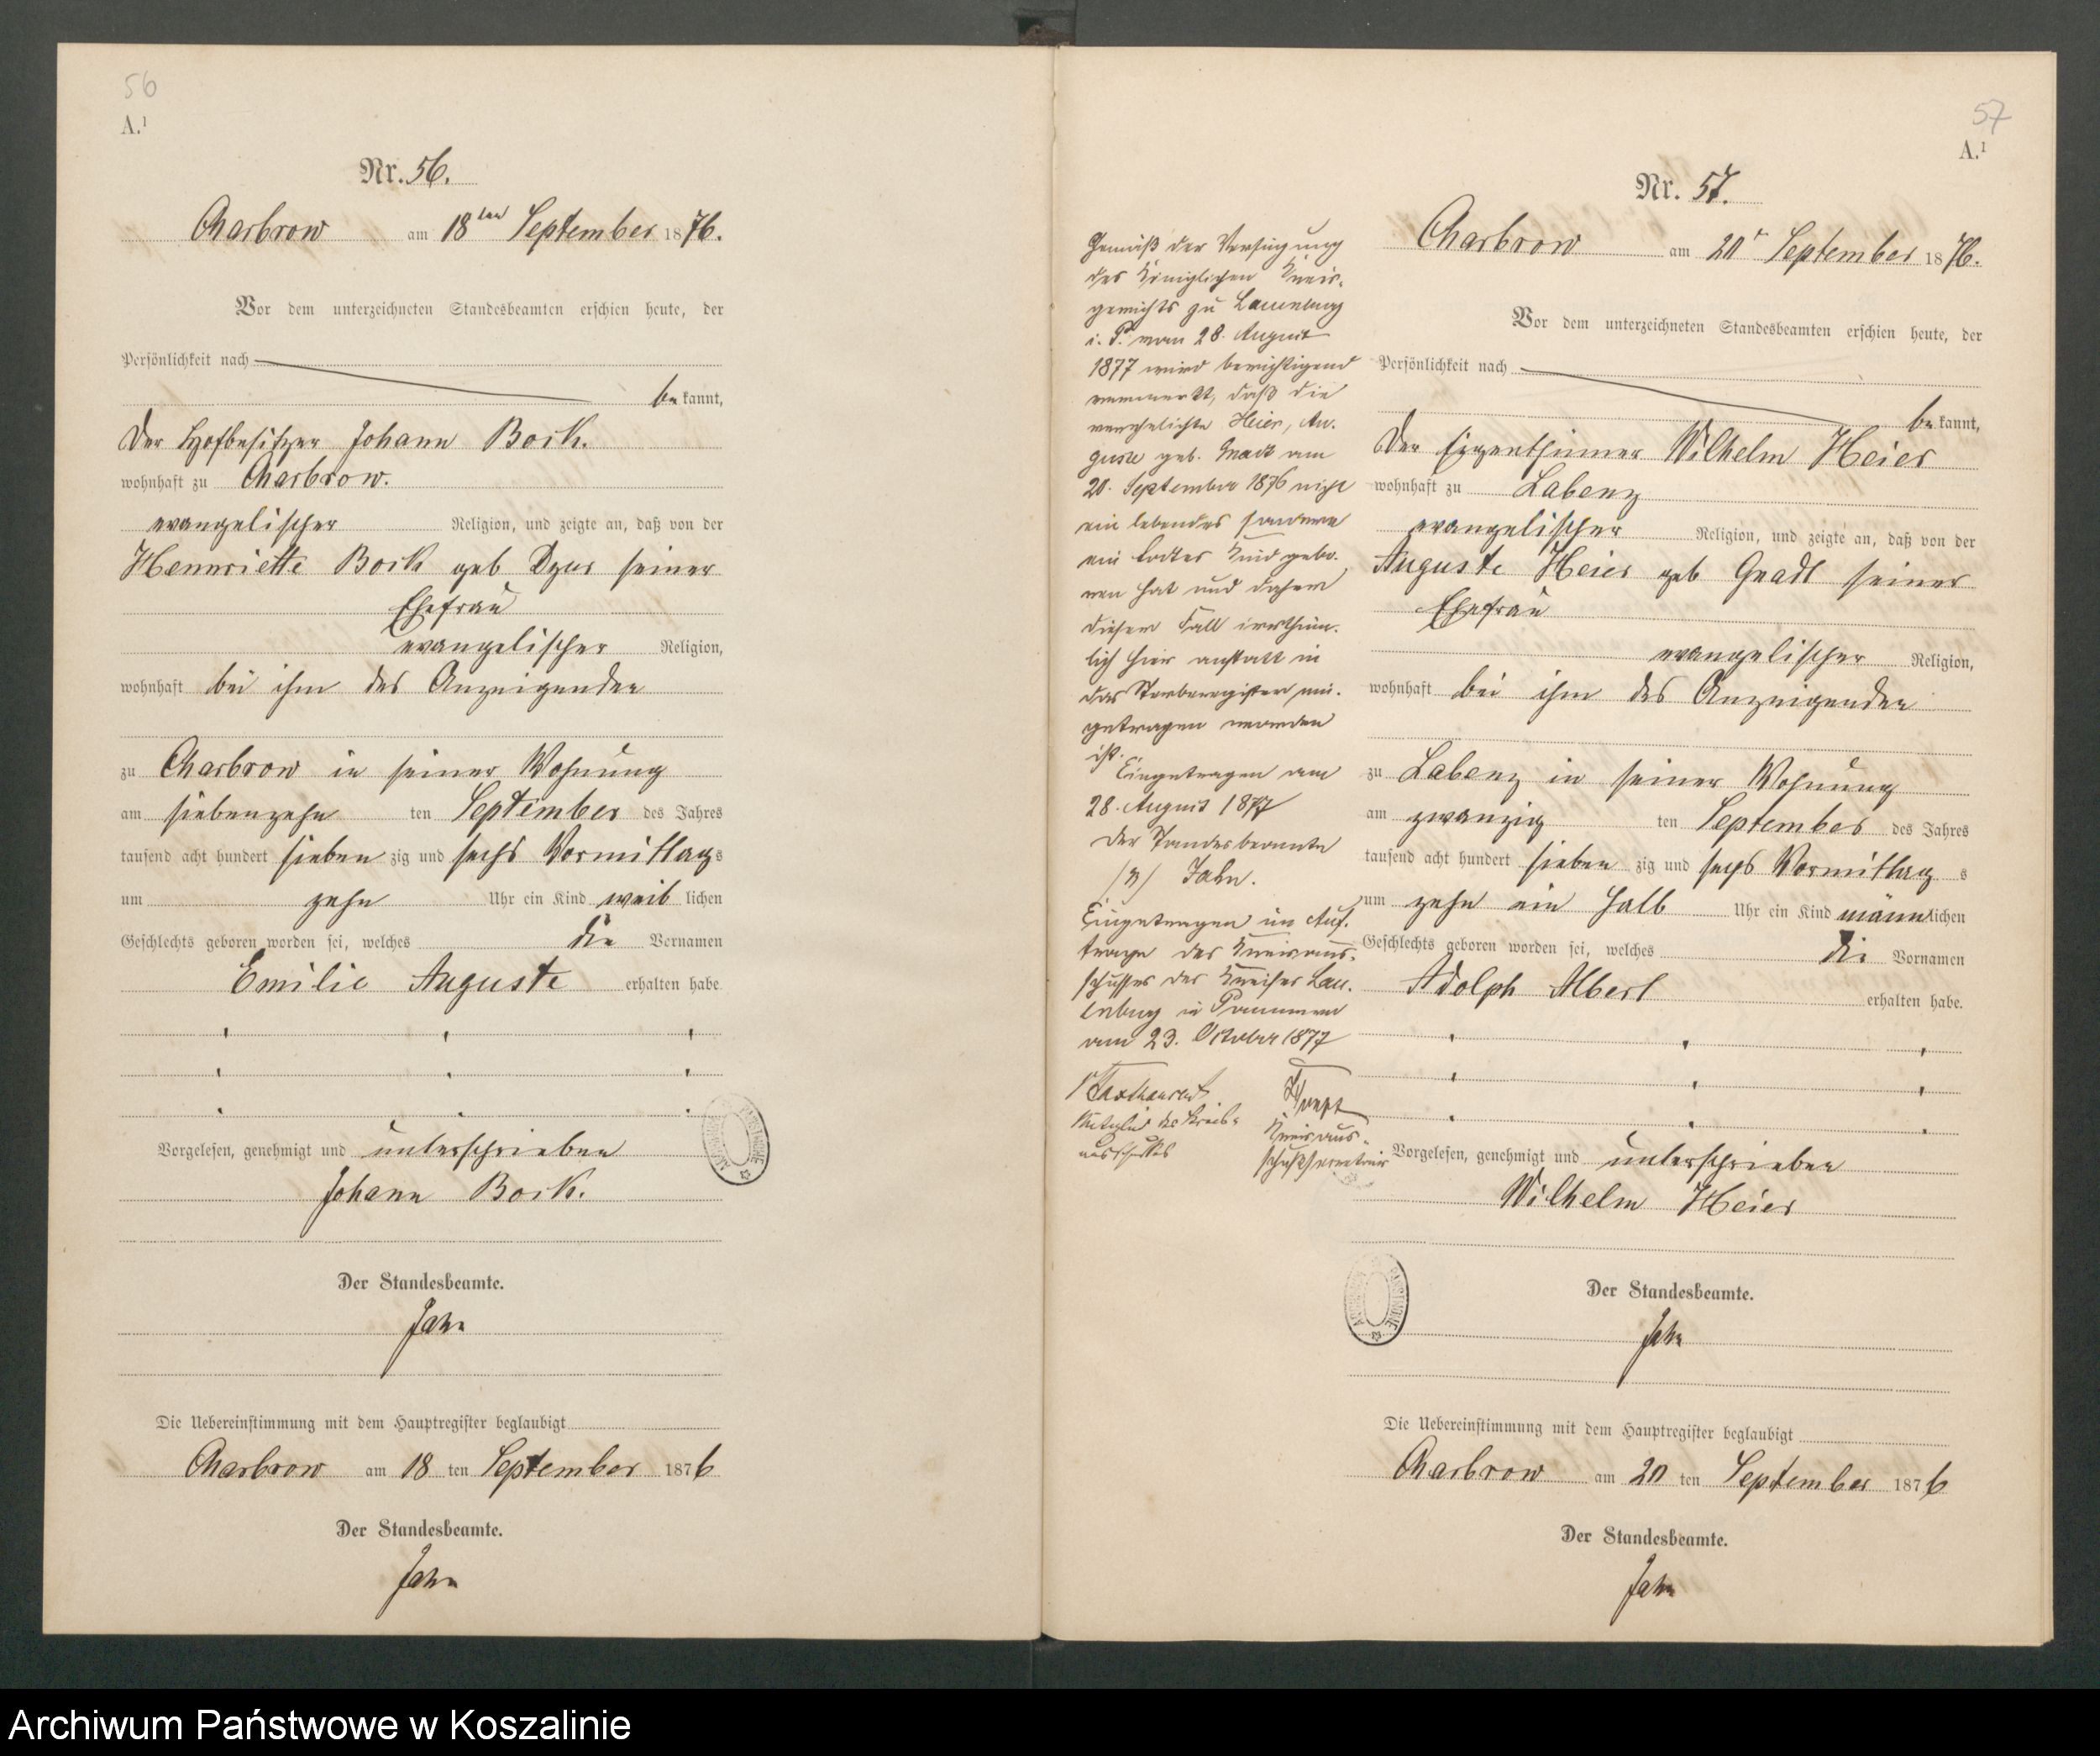 56
A.¹
Nr. 56.
Charbrow am 18ten September 1876.
Vor dem unterzeichneten Standesbeamten erschien heute, der
Persönlichkeit nach
be kannt,
Der Hofbesitzer Johann Bock.
wohnhaft zu Charbrow.
evangelischer Religion, und zeigte an, daß von der
Henriette Bock geb seiner
Ehefrau
evangelischer Religion,
wohnhaft bei ihm des Anzeigenden
zu Charbrow in seiner Wohnung
am siebenzehn ten September des Jahres
tausend acht hundert sieben zig und sechs Vormittags
um zehn Uhr ein Kind weib lichen
Geschlechts geboren worden sei, welches die Vornamen
Emilie Auguste erhalten habe.
Vorgelesen, genehmigt und unterschrieben
Johann Bock.
Der Standesbeamte.
Jahn
Die Uebereinstimmung mit dem Hauptregister beglaubigt
Charbrow am 18 ten September 1876
Der Standesbeamte.
Jahn
57
A.¹
Nr. 57.
Charbrow am 20t September 1876.
Vor dem unterzeichneten Standesbeamten erschien heute, der
Persönlichkeit nach
be kannt,
Der Eigenthümer Wilhelm Heier
wohnhaft zu Labenz
evangelischer Religion, und zeigte an, daß von der
Auguste Heier geb Gnadt seiner
Ehefrau
evangelischer Religion,
wohnhaft bei ihm des Anzeigenden
zu Labenz in seiner Wohnung
am zwanzig ten September des Jahres
tausend acht hundert sieben zig und sechs Vormittag s
um zehn ein halb Uhr ein Kind männlichen
Geschlechts geboren worden sei, welches die Vornamen
Adolph Albert erhalten habe.
Vorgelesen, genehmigt und unterschrieben
Wilhelm Heier
Der Standesbeamte.
Jahn
Die Uebereinstimmung mit dem Hauptregister beglaubigt
Charbrow am 20 ten September 1876
Der Standesbeamte.
Jahn
Gemäß der Verfügung
des Königlichen Kreis-
gerichts zu Lauenburg
i. P. vom 28. August
1877 wird berichtigend
vermerkt, daß die
verehelichte Heier, Au-
guste geb. Gnadt am
20. September 1876 nicht
ein lebendes sondern
ein todtes Kind gebo-
ren hat und daher
dieser Fall irrthüm-
lich hier anstatt in
das Sterberegister ein-
getragen worden
ist.
Eingetragen am
28. August 1877
Der Standesbeamte
Jahn.
Eingetragen im Auf-
trage des Kreisaus-
schusses des Kreises Lau-
enburg in Pommern
am 23. October 1877
Mitglied des Kreis-
ausschusses
Kreisaus-
schußsecretair
Archiwum Państwowe w Koszalinie